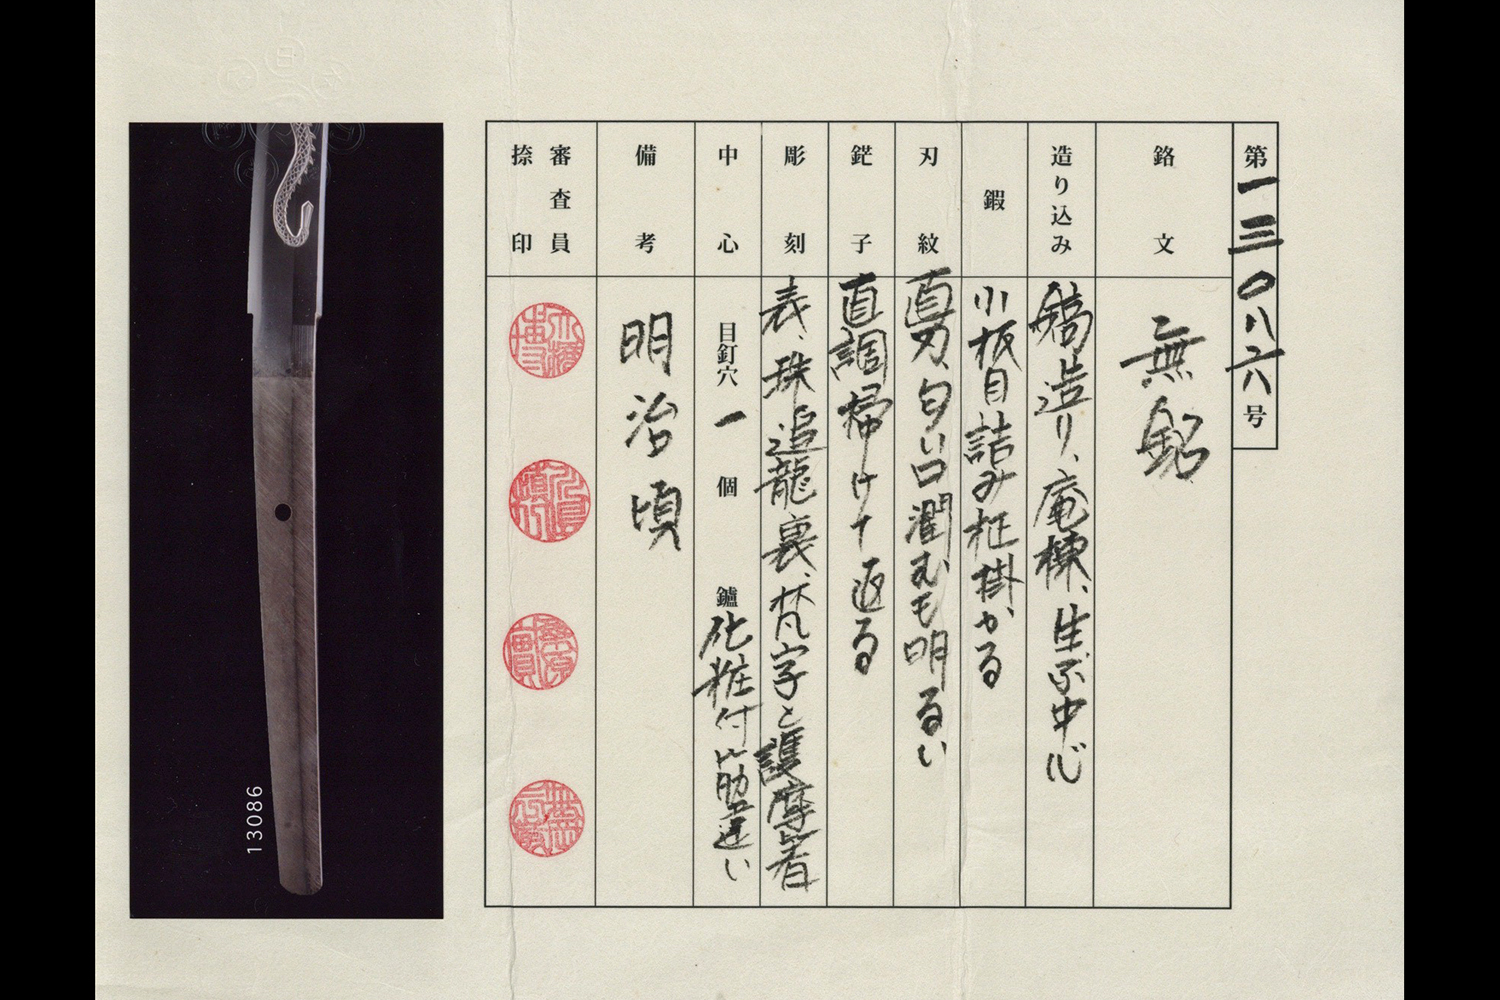 第一三〇八六号
銘文
無銘
造り込み
鎬造り、庵棟、生ぶ中心
鍜
小板目詰み柾掛かる
刃紋
直刃、匂い口潤むも明るい
鋩子
直調掃けて返る
彫刻
表、珠追龍裏、梵字と護摩箸
中心
目釘穴 一 個 鑢 化粧付筋違い
備考
明治頃
審査員
捺印
13086